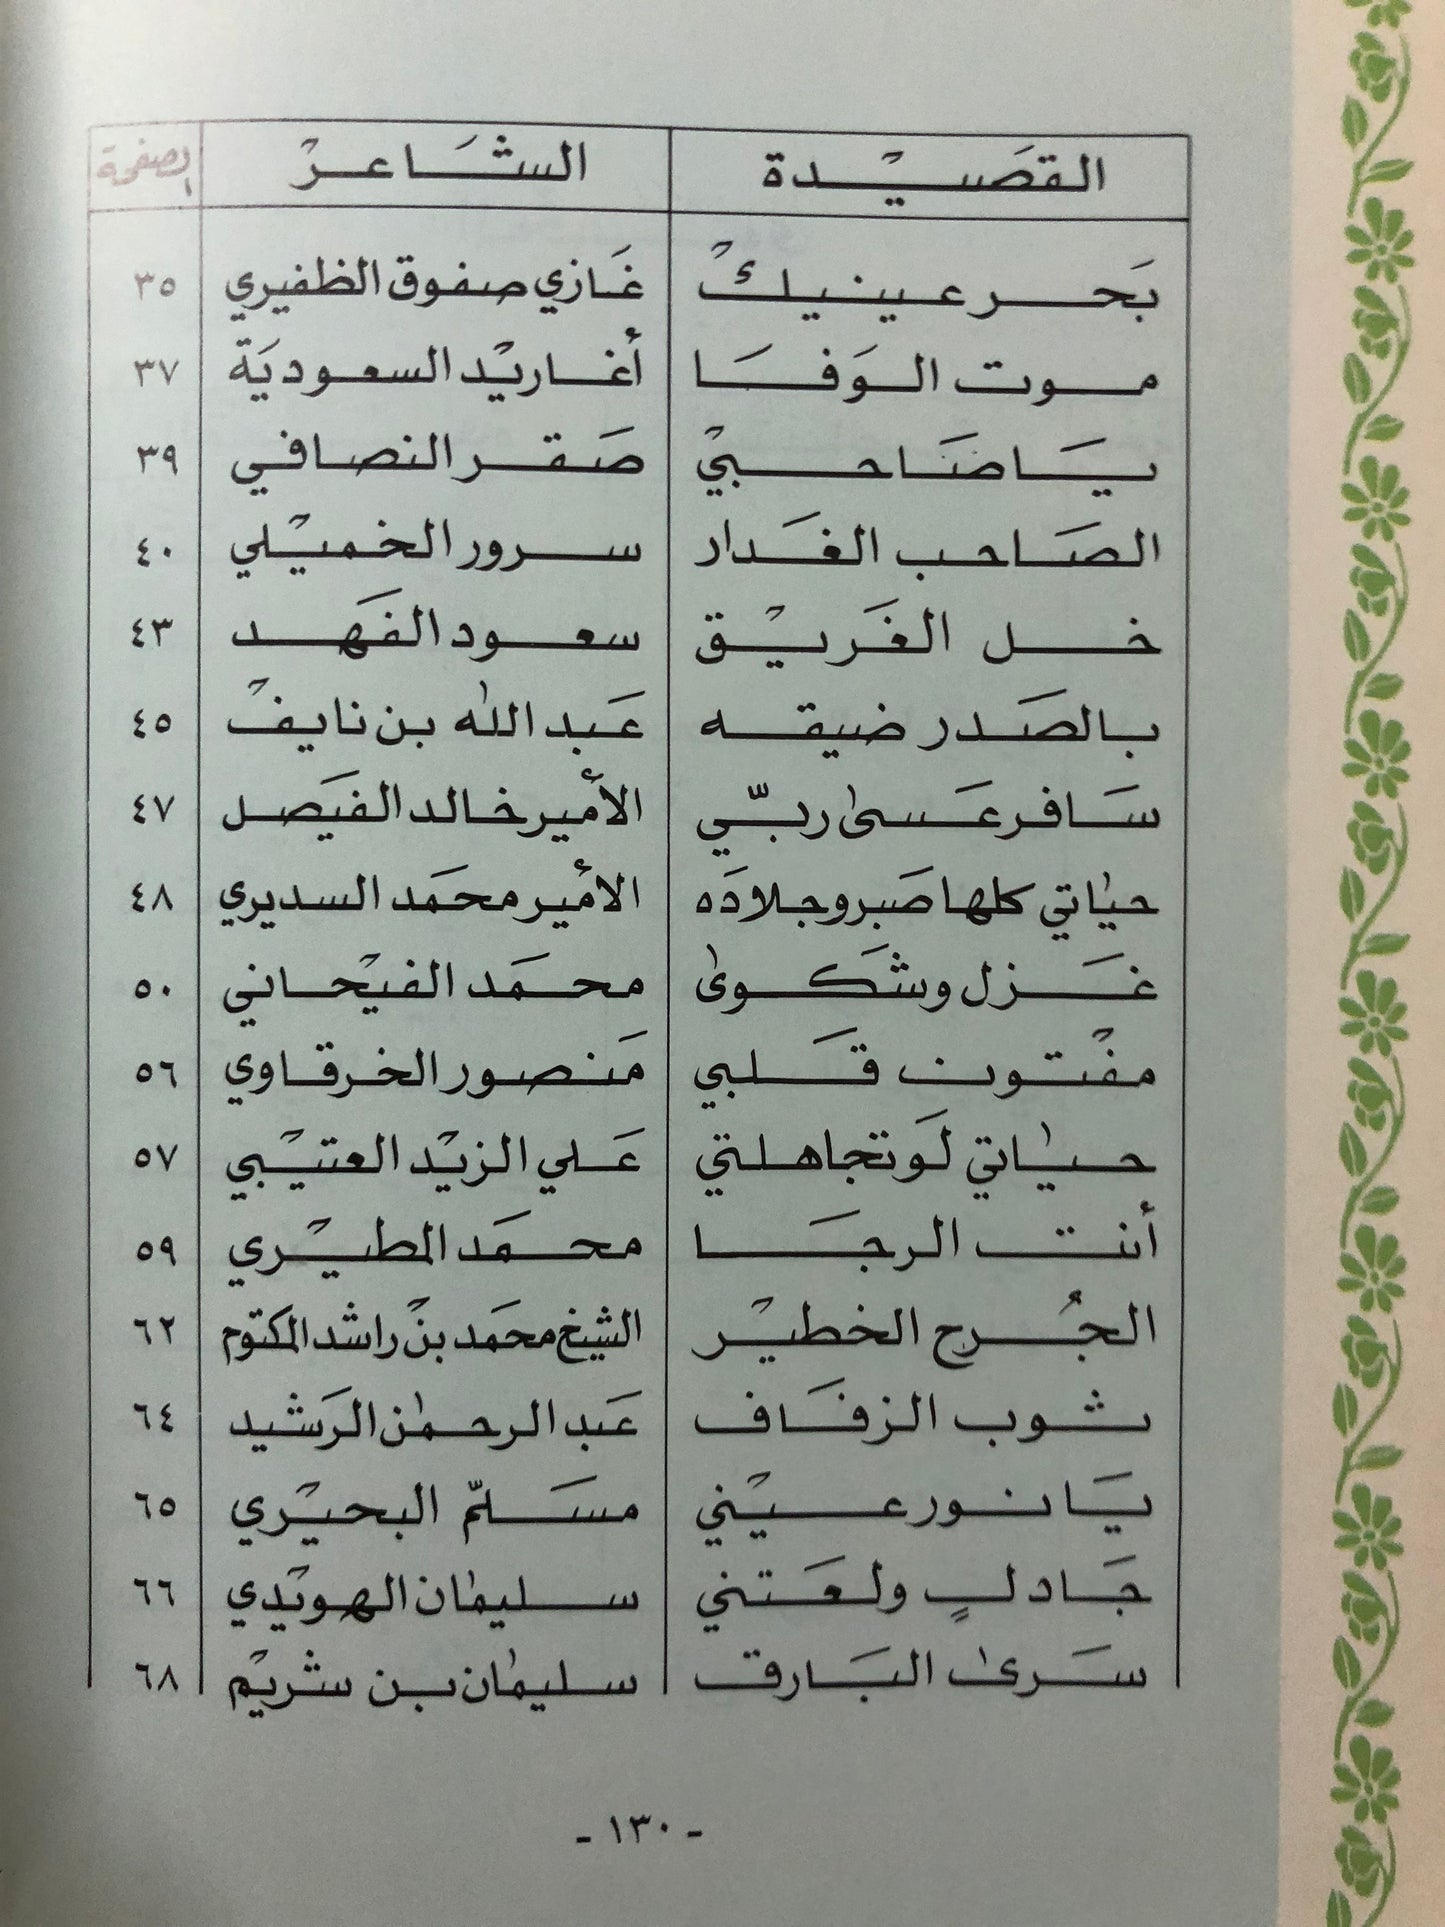 القصيدة الشاعر الصفحة
بحر عينيك غازي صفوق الظفيري ٣٥
موت الوفا أغاريد السعودية ٣٧
يا صاحبي صقر النصافي ٣٩
الصاحب الغدار سرور الخميلي ٤٠
خل الغريق سعود الفهد ٤٣
بالصدر ضيقه عبد الله بن نايف ٤٥
سافر عسى ربّي الأمير خالد الفيصل ٤٧
حياتي كلها صبر وجلاده الأمير محمد السديري ٤٨
غزل وشكوى محمد الفيحاني ٥٠
مفتون قلبي منصور الخرقاوي ٥٦
حياتي لو تجاهلتي علي الزيد العتيبي ٥٧
أنت الرجا محمد المطيري ٥٩
الجُرح الخطير الشيخ محمد بن راشد المكتوم ٦٢
ثوب الزفاف عبد الرحمن الرشيد ٦٤
يا نور عيني مسلّم البحيري ٦٥
جادلٍ ولعتني سليمان الهويدي ٦٦
سرى البارق سليمان بن شريم ٦٨
- ١٣٠ -